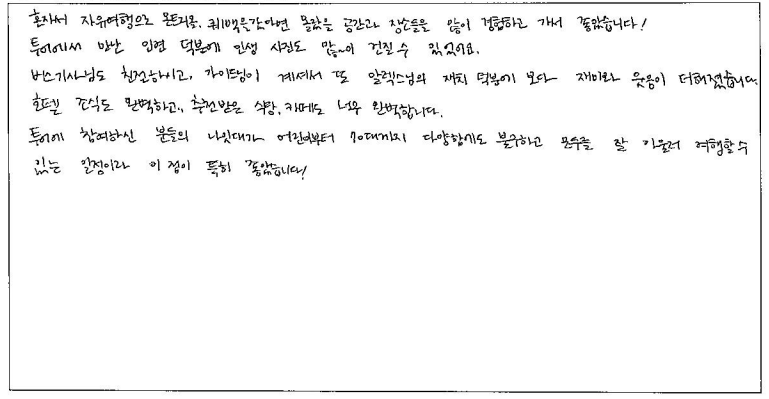 혼자서 자유여행으로 몬트리올, 퀘백을 갔다면 몰랐을 공간과 장소들을 많이 경험하고 가서 좋았습니다!
투어에서 만난 인연 덕분에 인생 사진도 많~이 건질 수 있었어요.
버스기사님도 친절하시고, 가이드님이 계셔서 또 알렉스님의 재치 덕분에 보다 재미와 웃음이 더해졌습니다.
호텔 조식도 완벽하고, 추천받은 식당, 카페도 너무 완벽합니다.
투어에 참여하신 분들의 나잇대가 어린이부터 70대까지 다양함에도 불구하고 모두들 잘 어울려 여행할 수
있는 일정이라 이 점이 특히 좋았습니다!